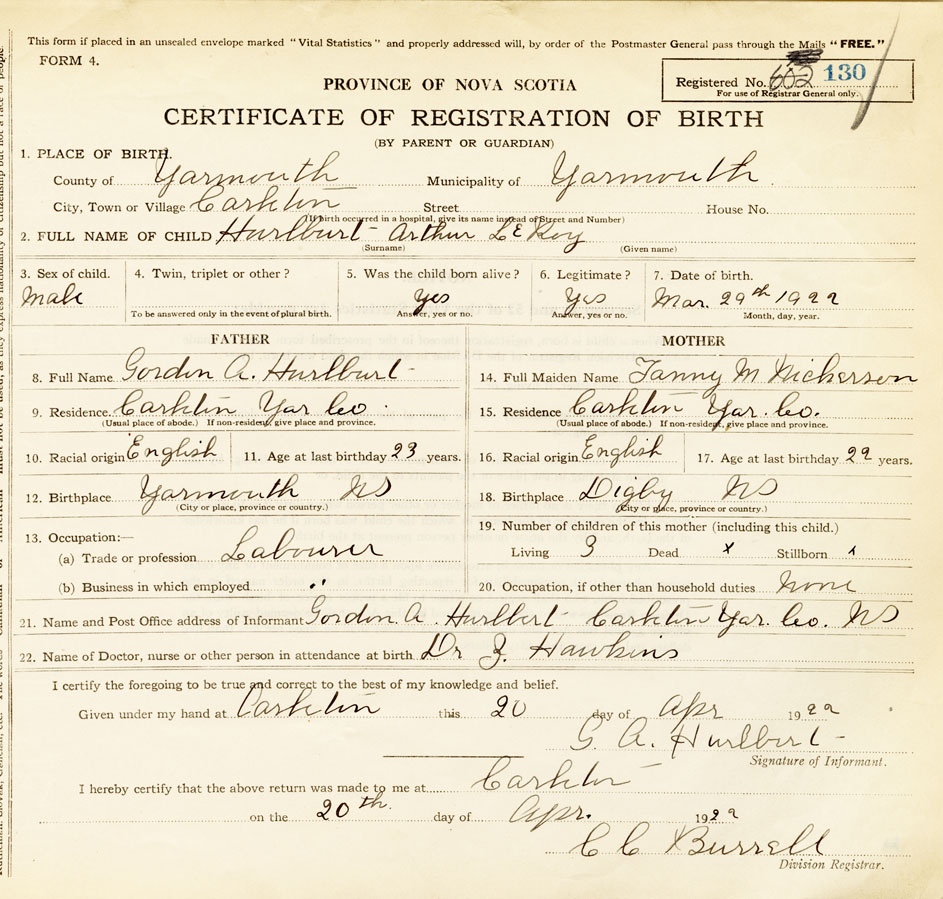 This form if placed in an unsealed envelope marked "Vital Statistics" and properly addressed will, by order of the Postmaster General pass through the Mails "FREE."
FORM 4.
Registered No. 602 130
For use of Registrar General only.
PROVINCE OF NOVA SCOTIA
CERTIFICATE OF REGISTRATION OF BIRTH
(BY PARENT OR GUARDIAN)
1. PLACE OF BIRTH.
County of Yarmouth Municipality of Yarmouth
City, Town or Village Carleton Street House No.
(If birth occurred in a hospital, give its name instead of Street and Number)
2. FULL NAME OF CHILD Hurlburt Arthur LeRoy
(Surname) (Given name)
3. Sex of child. 4. Twin, triplet or other? 5. Was the child born alive? 6. Legitimate? 7. Date of birth.
Male Yes Yes Mar. 29th 1922
To be answered only in the event of plural birth. Answer, yes or no. Answer, yes or no. Month, day, year.
FATHER MOTHER
8. Full Name Gordon A. Hurlburt 14. Full Maiden Name Fanny M Nickerson
9. Residence. Carleton Yar Co. 15. Residence Carleton Yar. Co.
(Usual place of abode.) If non-resident, give place and province. (Usual place of abode.) If non-resident, give place and province.
10. Racial origin English 11. Age at last birthday 23 years. 16. Racial origin English 17. Age at last birthday 22 years.
12. Birthplace Yarmouth NS 18. Birthplace Digby NS
(City or place, province or country.) (City or place, province or country.)
13. Occupation:— 19. Number of children of this mother (including this child.)
(a) Trade or profession Labourer Living 3 Dead x Stillborn x
(b) Business in which employed " 20. Occupation, if other than household duties None
21. Name and Post Office address of Informant Gordon. A. Hurlbert Carleton Yar. Co. NS
22. Name of Doctor, nurse or other person in attendance at birth Dr Z. Hawkins
I certify the foregoing to be true and correct to the best of my knowledge and belief.
Given under my hand at Carleton this 20 day of Apr 1922
G. A. Hurlbert
Signature of Informant.
I hereby certify that the above return was made to me at Carleton
on the 20th. day of Apr. 1922
C C Burrell
Division Registrar.